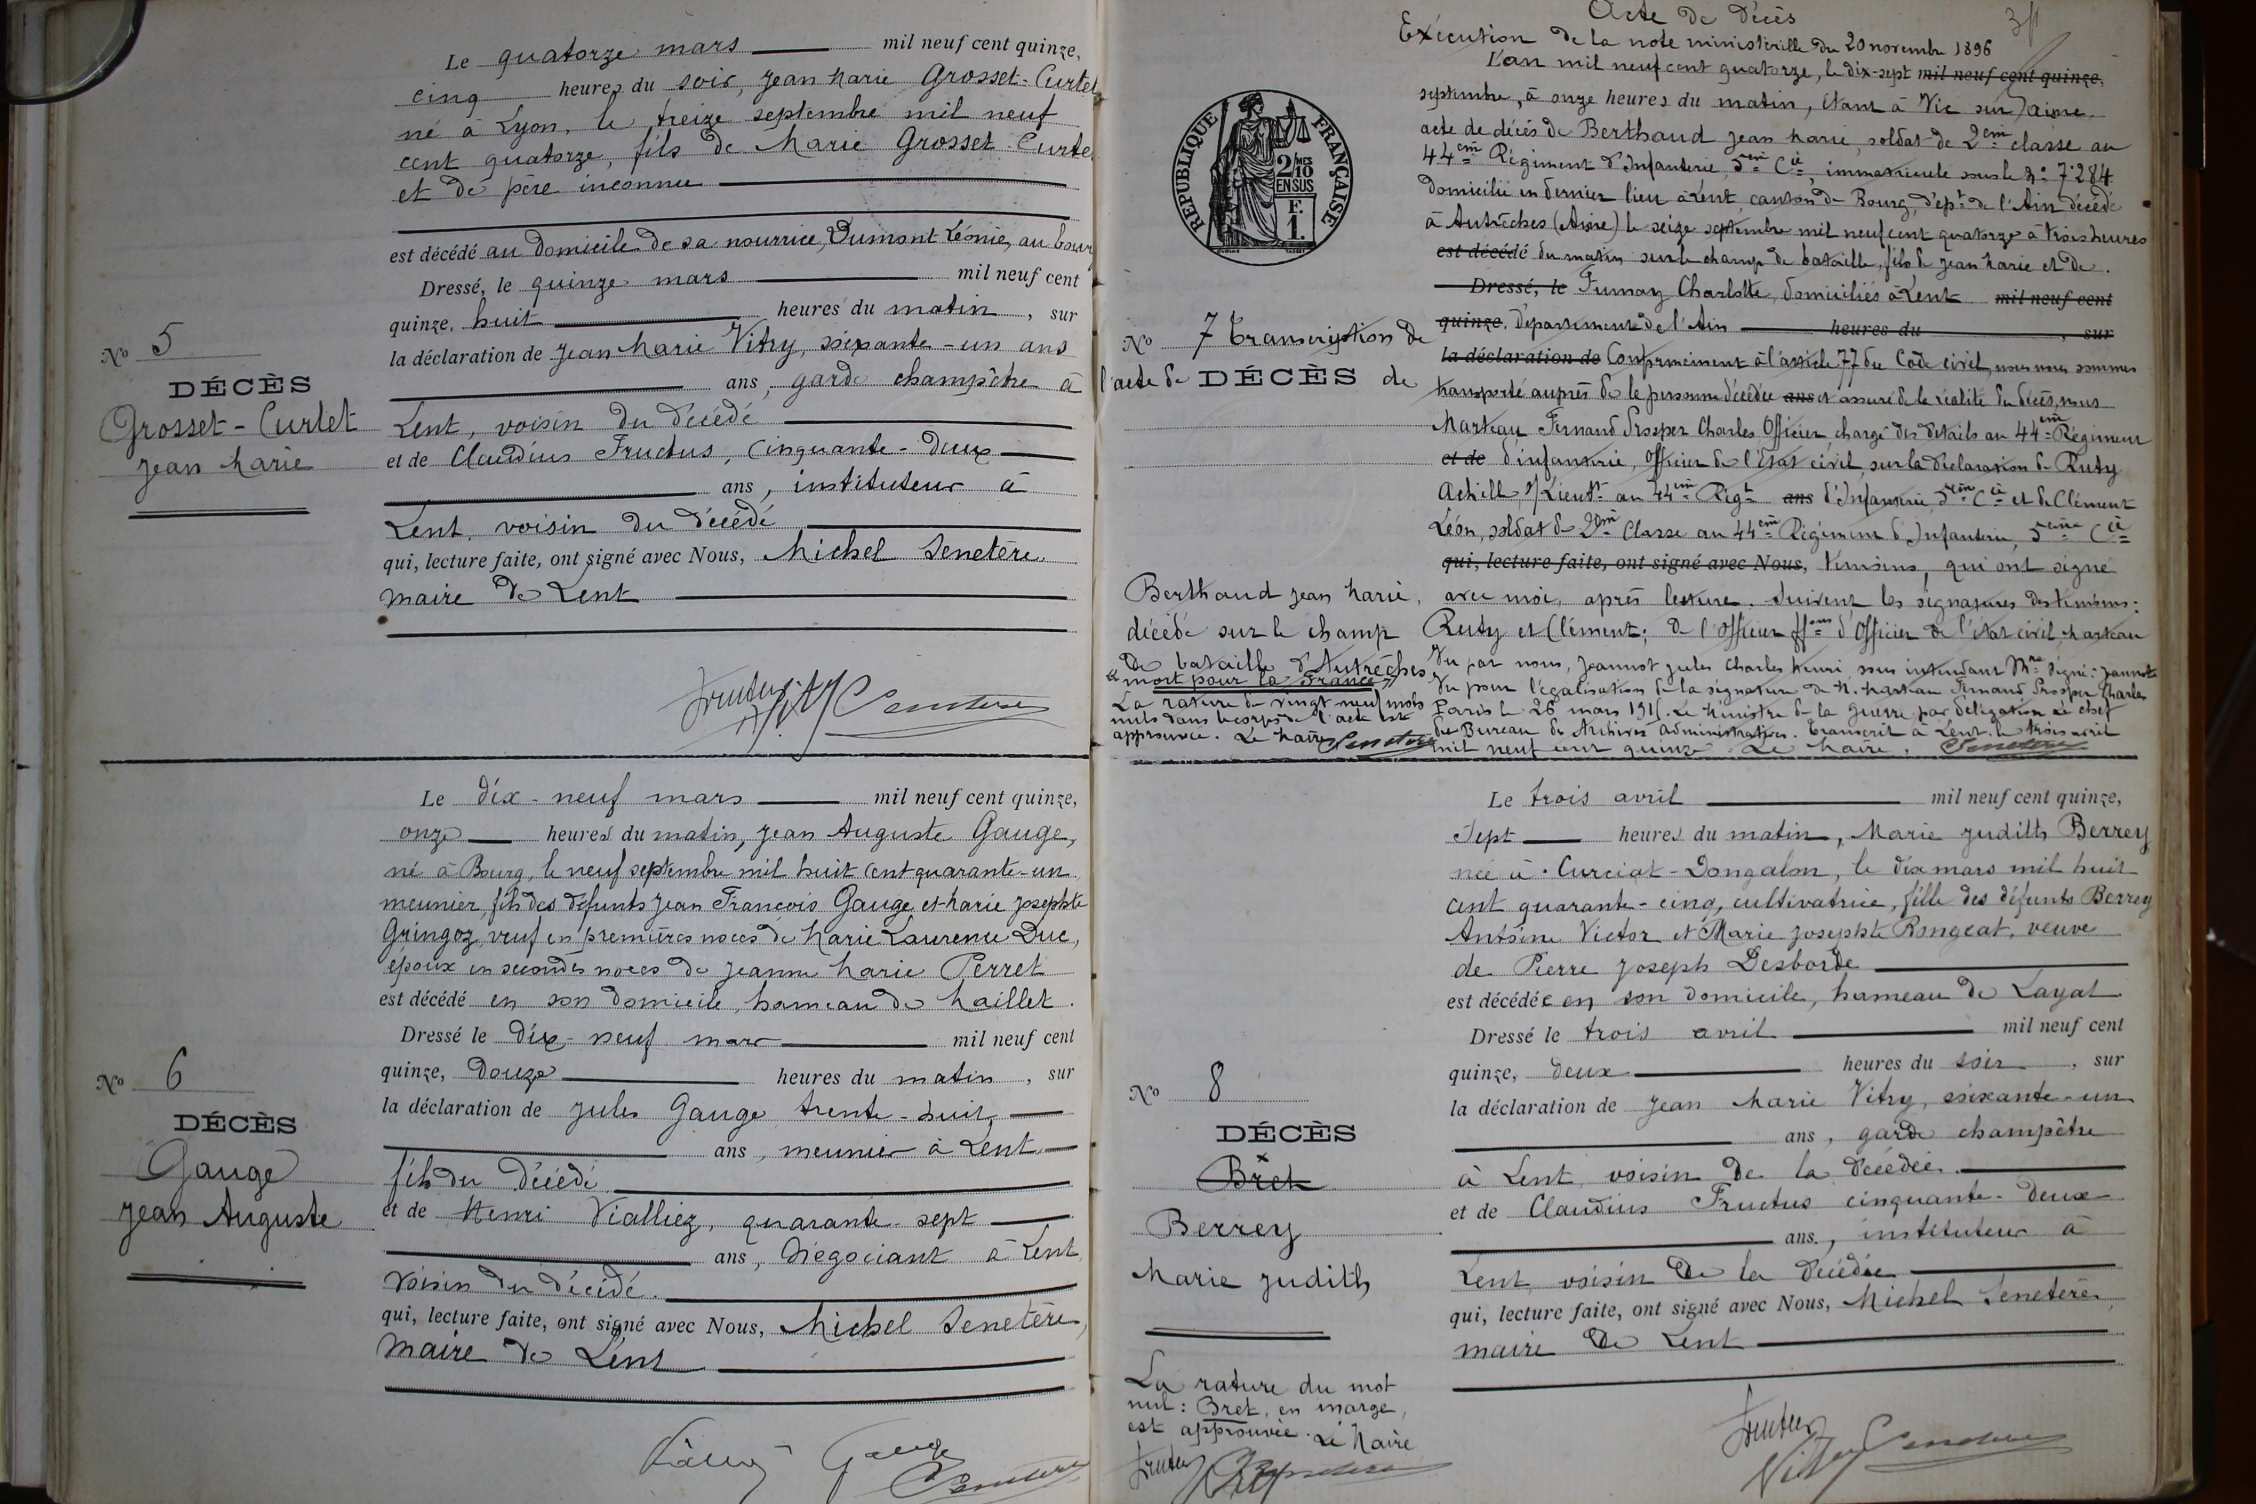 Le quatorze mars mil neuf cent quinze,
cinq heures du soir, Jean Marie Grosset-Curtet
né à Lyon, le treize septembre mil neuf
cent quatorze, fils de Marie Grosset-Curtet
et de père inconnu
est décédé au domicile de sa nourrice, Dumont Léonie, au bourg
Dressé, le quinze mars mil neuf cent
quinze, huit heures du matin, sur
la déclaration de Jean Marie Vitry, soixante-un ans
ans, garde champêtre à
Lent, voisin du décédé
et de Claudius Fructus, cinquante-deux
ans, instituteur à
Lent, voisin du décédé
qui, lecture faite, ont signé avec Nous, Michel Senetère,
maire de Lent
No 5
DÉCÈS
Grosset-Curtet
Jean Marie
Le dix-neuf mars mil neuf cent quinze,
onze heures du matin, Jean Auguste Gauge,
né à Bourg, le neuf septembre mil huit cent quarante-un
meunier, fils des défunts Jean François Gauge et Marie Josephte
Gringoz, veuf en premières noces de Marie Laurence Duc,
époux en secondes noces de Jeanne Marie Perret
est décédé en son domicile, hameau de Maillet.
Dressé le dix-neuf mars mil neuf cent
quinze, douze heures du matin, sur
la déclaration de Jules Gauge trente-huit
ans, meunier à Lent
fils du décédé
et de Henri Vialliez, quarante-sept
ans, négociant à Lent
voisin du décédé.
qui, lecture faite, ont signé avec Nous, Michel Senetère,
maire de Lent
No 6
DÉCÈS
Gauge
Jean Auguste
Gauge
Acte de décès
Exécution de la note ministérielle du 20 novembre 1896
L'an mil neuf cent quatorze, le dix-sept mil neuf cent quinze,
septembre, à onze heures du matin, étant à Vic sur Aisne
acte de décès de Berthaud Jean Marie, soldat de 2ème classe au
44ème Régiment d'Infanterie, 5ème Cie, immatriculé sous le No 7.284
domicilié en dernier lieu à Lent, canton de Bourg, dépt de l'Ain décédé
à Autrêches (Aisne) le seize septembre mil neuf cent quatorze à trois heures
est décédé du matin sur le champ de bataille, fils de Jean Marie et de
Dressé, le Fumay Charlotte, domiciliés à Lent mil neuf cent
quinze, Département de l'Ain heures du , sur
la déclaration de Conformément à l'article 77 du Code civil, nous nous sommes
transporté auprès de la personne décédée ans et assuré de la réalité du décès, nous
Marteau Fernand Prosper Charles Officier chargé des détails au 44ème Régiment
et de d'infanterie, Officier de l'Etat civil, sur la déclaration de Ruty
Achille, s/Lieutt au 44ème Régt ans d'Infanterie 5ème Cie et de Clément
Léon, soldat de 2ème Classe au 44ème Régiment d'Infanterie, 5ème Cie
qui, lecture faite, ont signé avec Nous, témoins, qui ont signé
avec moi, après lecture. Suivent les signatures des témoins:
Ruty et Clément; de l'Officier ffons d'Officier de l'état civil, Marteau
Vu par nous, Jeannot Jules Charles Henri sous intendant Mre Signé: Jeannot
Vu pour légalisation de la signature de M. Marteau Fernand Prosper Charles
Paris le 26 mars 1915. Le Ministre de la Guerre par délégation Le chef
du Bureau des Archives Administratives. Transcrit à Lent le trois avril
mil neuf cent quinze. Le Maire, Senetère
REPUBLIQUE FRANÇAISE
2/10 EN SUS
F. 1.
No 7 Transcription de
l'acte de DÉCÈS de
Berthaud Jean Marie,
décédé sur le champ
de bataille d'Autrêches
"mort pour la France"
La rature de vingt-neuf mots
nuls dans le corps de l'acte est
approuvée. Le Maire Senetère
Le trois avril mil neuf cent quinze,
sept heures du matin, Marie Judith Berrey
née à Curciat-Dongalon, le dix mars mil huit
cent quarante-cinq, cultivatrice, fille des défunts Berrey
Antoine Victor et Marie Josephte Rongeat, veuve
de Pierre Joseph Desborde
est décédée en son domicile, hameau de Layat
Dressé le trois avril mil neuf cent
quinze, deux heures du soir, sur
la déclaration de Jean Marie Vitry, soixante-un
ans, garde champêtre
à Lent voisin de la décédée.
et de Claudius Fructus cinquante-deux
ans, instituteur à
Lent, voisin de la décédée
qui, lecture faite, ont signé avec Nous, Michel Senetère,
maire de Lent
No 8
DÉCÈS
Bret
Berrey
Marie Judith
La rature du mot
nul: Bret, en marge,
est approuvée. Le Maire